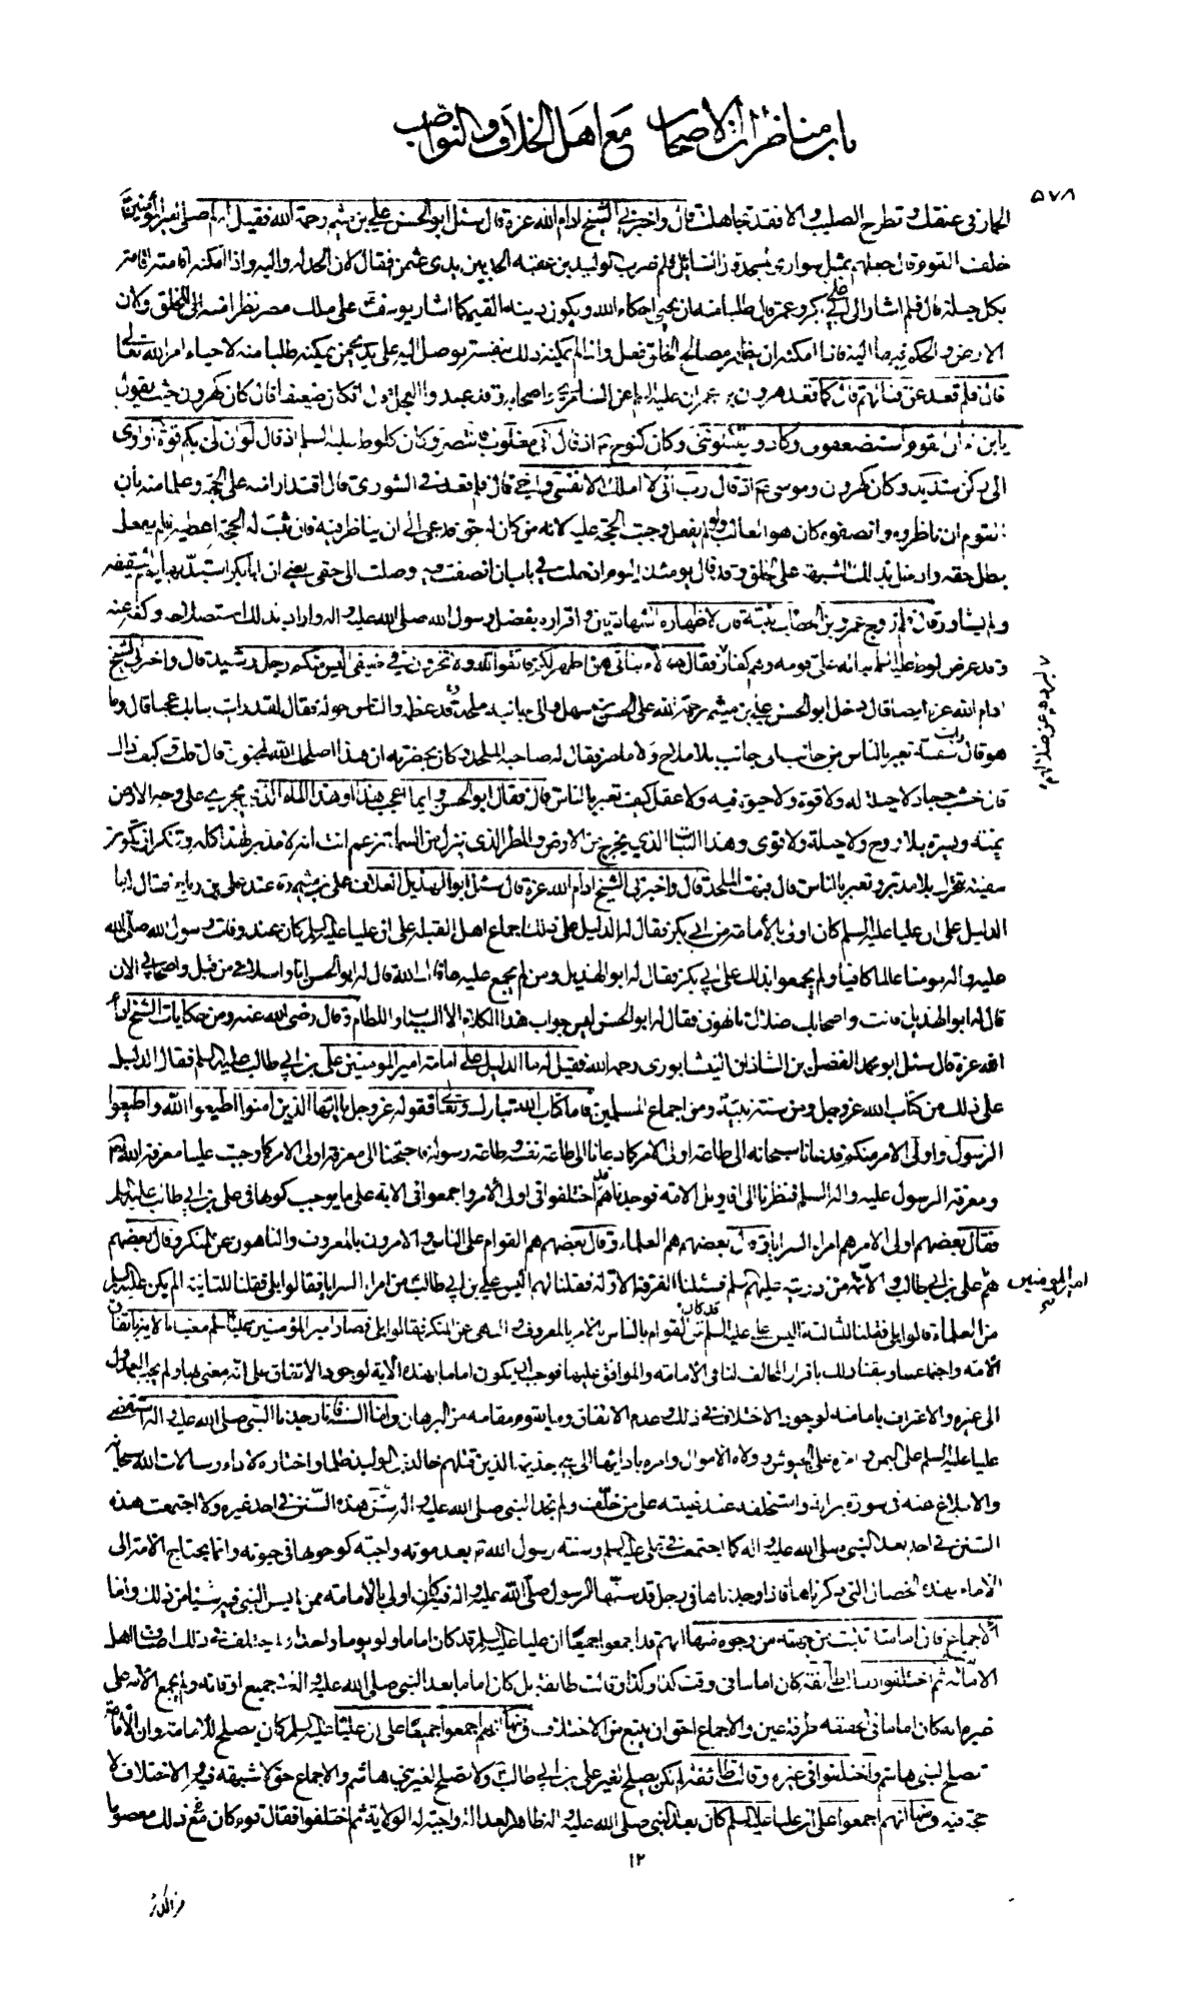 باب مناظرات الاصحاب مع اهل الخلاف والنواصب
٥٧٨
الحمار في عنقك وتطرح الصليب والا فقد تجاهلت قال واخبرني الشيخ ادام الله عزه قال سئل ابو الحسن علي بن ميثم رحمة الله فقيل له لم صلى امير المؤمنين
خلف القوم قال جعلهم بمثل سواري المسجد قال السائل فلم ضرب الوليد بن عقبة الحد بين يدي عثمن فقال لان الحد له واليه واذا امكنه اقامته اقامته
بكل حيلة قال فلم اشار الى ابي بكر وعمر قال طلبا منه ان يحيي احكام الله ويكون دينه القيم كما اشار يوسف على ملك مصر نظرا منه الى الخلق وكان
الارض والحكم فيها اليه فاذا امكنه ان يظهر مصالح الخلق فعل واذا لم يمكنه ذلك بنفسه توصل اليه على يدي من يمكنه طلبا منه لاحياء امر الله تعالى
قال فلم قعد عن قتالهم قال كما قعد هرون بن عمران عليه السلام عن السامري واصحابه وقد عبدوا العجل قال افكان ضعيفا قال كان كهرون حيث يقول
يابن ام ان القوم استضعفوني وكادوا يقتلونني وكان كنوح اذ قال اني مغلوب فانتصر وكان كلوط عليه السلم اذ قال لو ان لي بكم قوة او اوى
الى ركن شديد وكان كهرون وموسى اذ قال رب اني لا املك الا نفسي واخي قال فلم قعد في الشورى قال اقتدارا منه على الحجة وعلما منه بان
القوم ان ناظروه وانصفوه كان هو الغالب ولو لم يفعل وجبت الحجة عليه لانه من كان له حق فدعي الى ان يناظر فيه فان ثبت له الحجة اعطيه فلم يفعل
بطل حقه وادخل بذلك الشبهة على الخلق وقد قال يومئذ اليوم ادخلت في باب ان انصفت فيه وصلت الى حقي يعني ان ابا بكر استبد بها يوم السقيفة
ولم يشاور قال فلم زوج عمر بن الخطاب بنته قال لاظهاره الشهادتين واقراره بفضل رسول الله صلى الله عليه واله واراد بذلك استصلاحه وكفه عنه
وقد عرض لوط عليه السلم بناته على قومه وهم كفار فقال هؤلاء بناتي هن اطهر لكم فاتقوا الله ولا تخزون في ضيفي اليس منكم رجل رشيد قال واخبرني الشيخ
ادام الله عزه ايضا قال دخل ابو الحسن علي بن ميثم رحمة الله على الحسن بن سهل والى جانبه ملحد قد عظمه والناس حوله فقال لقد رايت ببابك عجبا قال وما
هو قال رايت سفينة تعبر بالناس من جانب الى جانب بلا ملاح ولا ماصر فقال له صاحبه الملحد وكان بحضرته ان هذا اصلحك الله لمجنون قال قلت وكيف ذاك
قال خشب جماد لا حيلة له ولا قوة ولا حيوة فيه ولا عقل كيف تعبر بالناس قال فقال ابو الحسن وايما اعجب هذا او هذا الماء الذي يجري على وجه الارض
يمنة ويسرة بلا روح ولا حيلة ولا قوى وهذا النبات الذي يخرج من الارض والمطر الذي ينزل من السماء تزعم انت انه لا مدبر لهذا كله وتنكر ان يكون
سفينة تتحرك بلا مدبر وتعبر بالناس قال فبهت الملحد قال واخبرني الشيخ ادام الله عزه قال سئل ابو الهذيل العلاف علي بن ميثم ره عند علي بن رياح فقال له ما
الدليل على ان عليا عليه السلم كان اولى بالامامة من ابي بكر فقال له الدليل على ذلك اجماع اهل القبلة على ان عليا عليه السلم كان عند وفات رسول الله صلى الله
عليه واله مومنا عالما كافيا ولم يجمعوا بذلك على ابي بكر فقال له ابو الهذيل ومن لم يجمع عليه عافاك الله قال له ابو الحسن انا واسلافي من قبل واصحابي الان
قال له ابو الهذيل فانت واصحابك ضلال تائهون فقال له ابو الحسن ليس جواب هذا الكلام الا السباب واللطام وقال رضي الله عنه ومن حكايات الشيخ ادام
الله عزه قال سئل ابو محمد الفضل بن الشاذن النيشابوري رحمه الله فقيل له ما الدليل على امامة امير المومنين علي بن ابي طالب عليه السلم فقال الدليل
على ذلك من كتاب الله عز وجل ومن سنة نبيه ومن اجماع المسلمين فاما كتاب الله تبارك وتعالى فقوله عز وجل يا ايها الذين امنوا اطيعوا الله واطيعوا
الرسول واولى الامر منكم فدعانا سبحانه الى طاعة اولى الامر كما دعانا الى طاعة نفسه وطاعة رسوله فاحتجنا الى معرفة اولى الامر كما وجبت علينا معرفة الله
ومعرفة الرسول عليه واله السلم فنظرنا الى اقاويل الامة فوجدناهم قد اختلفوا في اولى الامر واجمعوا في الاية على ما يوجب كونها في علي بن ابي طالب عليه السلم
فقال بعضهم اولى الامر هم امراء السرايا وقال بعضهم هم العلماء وقال بعضهم هم القوام على الناس والامرون بالمعروف والناهون عن المنكر وقال بعضهم
هم علي بن ابي طالب والائمة من ذريته عليهم السلم فسئلنا الفرقة الاولة فقلنا لهم اليس علي بن ابي طالب من امراء السرايا فقالوا بلى فقلنا للثانية الم يكن عليه السلم
امير المومنين
من العلماء قالوا بلى فقلنا للثالثة اليس علي عليه السلم قد كان من القوام بالناس بالامر بالمعروف والنهي عن المنكر فقالوا بلى فصار امير المؤمنين عليه السلم معنيا بالاية باتفاق
الامة واجماعها وتيقنا ذلك باقرار المخالف لنا في الامامة والموافق عليها فوجب ان يكون اماما بهذه الاية لوجود الاتفاق على انه معنى بها ولم يجب العدول
الى غيره والاعتراف بامامته لوجود الاختلاف في ذلك وعدم الاتفاق وما يقوم مقامه من البرهان واما السنة فانا وجدنا النبي صلى الله عليه واله استقضى
عليا عليه السلم على اليمن وامره على الجيوش وولاه الاموال وامره بادائها الى بني جذيمة الذين قتلهم خالد بن الوليد ظلما واختاره لاداء رسالات الله سبحانه
والابلاغ عنه في سورة براءة واستخلفه عند غيبته على من خلف ولم نجد النبي صلى الله عليه واله سن هذه السنن في احد غيره ولا اجتمعت هذه
السنن في احد بعد النبي صلى الله عليه واله كما اجتمعت في علي عليه السلم وسنة رسول الله بعد موته واجبة كوجوبها في حيوته وانما يحتاج الامة الى
الامام بهذه الخصال التي ذكرناها فاذا وجدناها في رجل قد سنها الرسول صلى الله عليه واله فيه كان اولى بالامامة ممن لم يسن النبي فيه شيئا من ذلك واما
الاجماع فان امامته تثبت من جهته من وجوه منها انهم قد اجمعوا جميعا ان عليا عليه السلم قد كان اماما ولو يوما واحدا ولم يختلف في ذلك اصناف اهل
الامامة ثم اختلفوا فقالت طائفة كان اماما في وقت كذا وكذا وقالت طائفة بل كان اماما بعد النبي صلى الله عليه واله في جميع اوقاته ولم يجمع الامة على
غيره انه كان اماما في الحقيقة طرفة عين والاجماع احق ان يتبع من الاختلاف ومنها انهم اجمعوا جميعا على ان عليا عليه السلم كان يصلح للامامة وان الامامة
تصلح لبني هاشم واختلفوا في غيره وقالت طائفة لم يكن يصلح لغير علي بن ابي طالب ولا تصلح لغير بني هاشم والاجماع حق لا شبهة فيه والاختلاف لا
حجة فيه ومنها انهم اجمعوا على ان عليا عليه السلم كان بعد النبي صلى الله عليه واله ظاهر العدالة واجبة له الولاية ثم اختلفوا فقال قوم كان مع ذلك معصوما
١٢